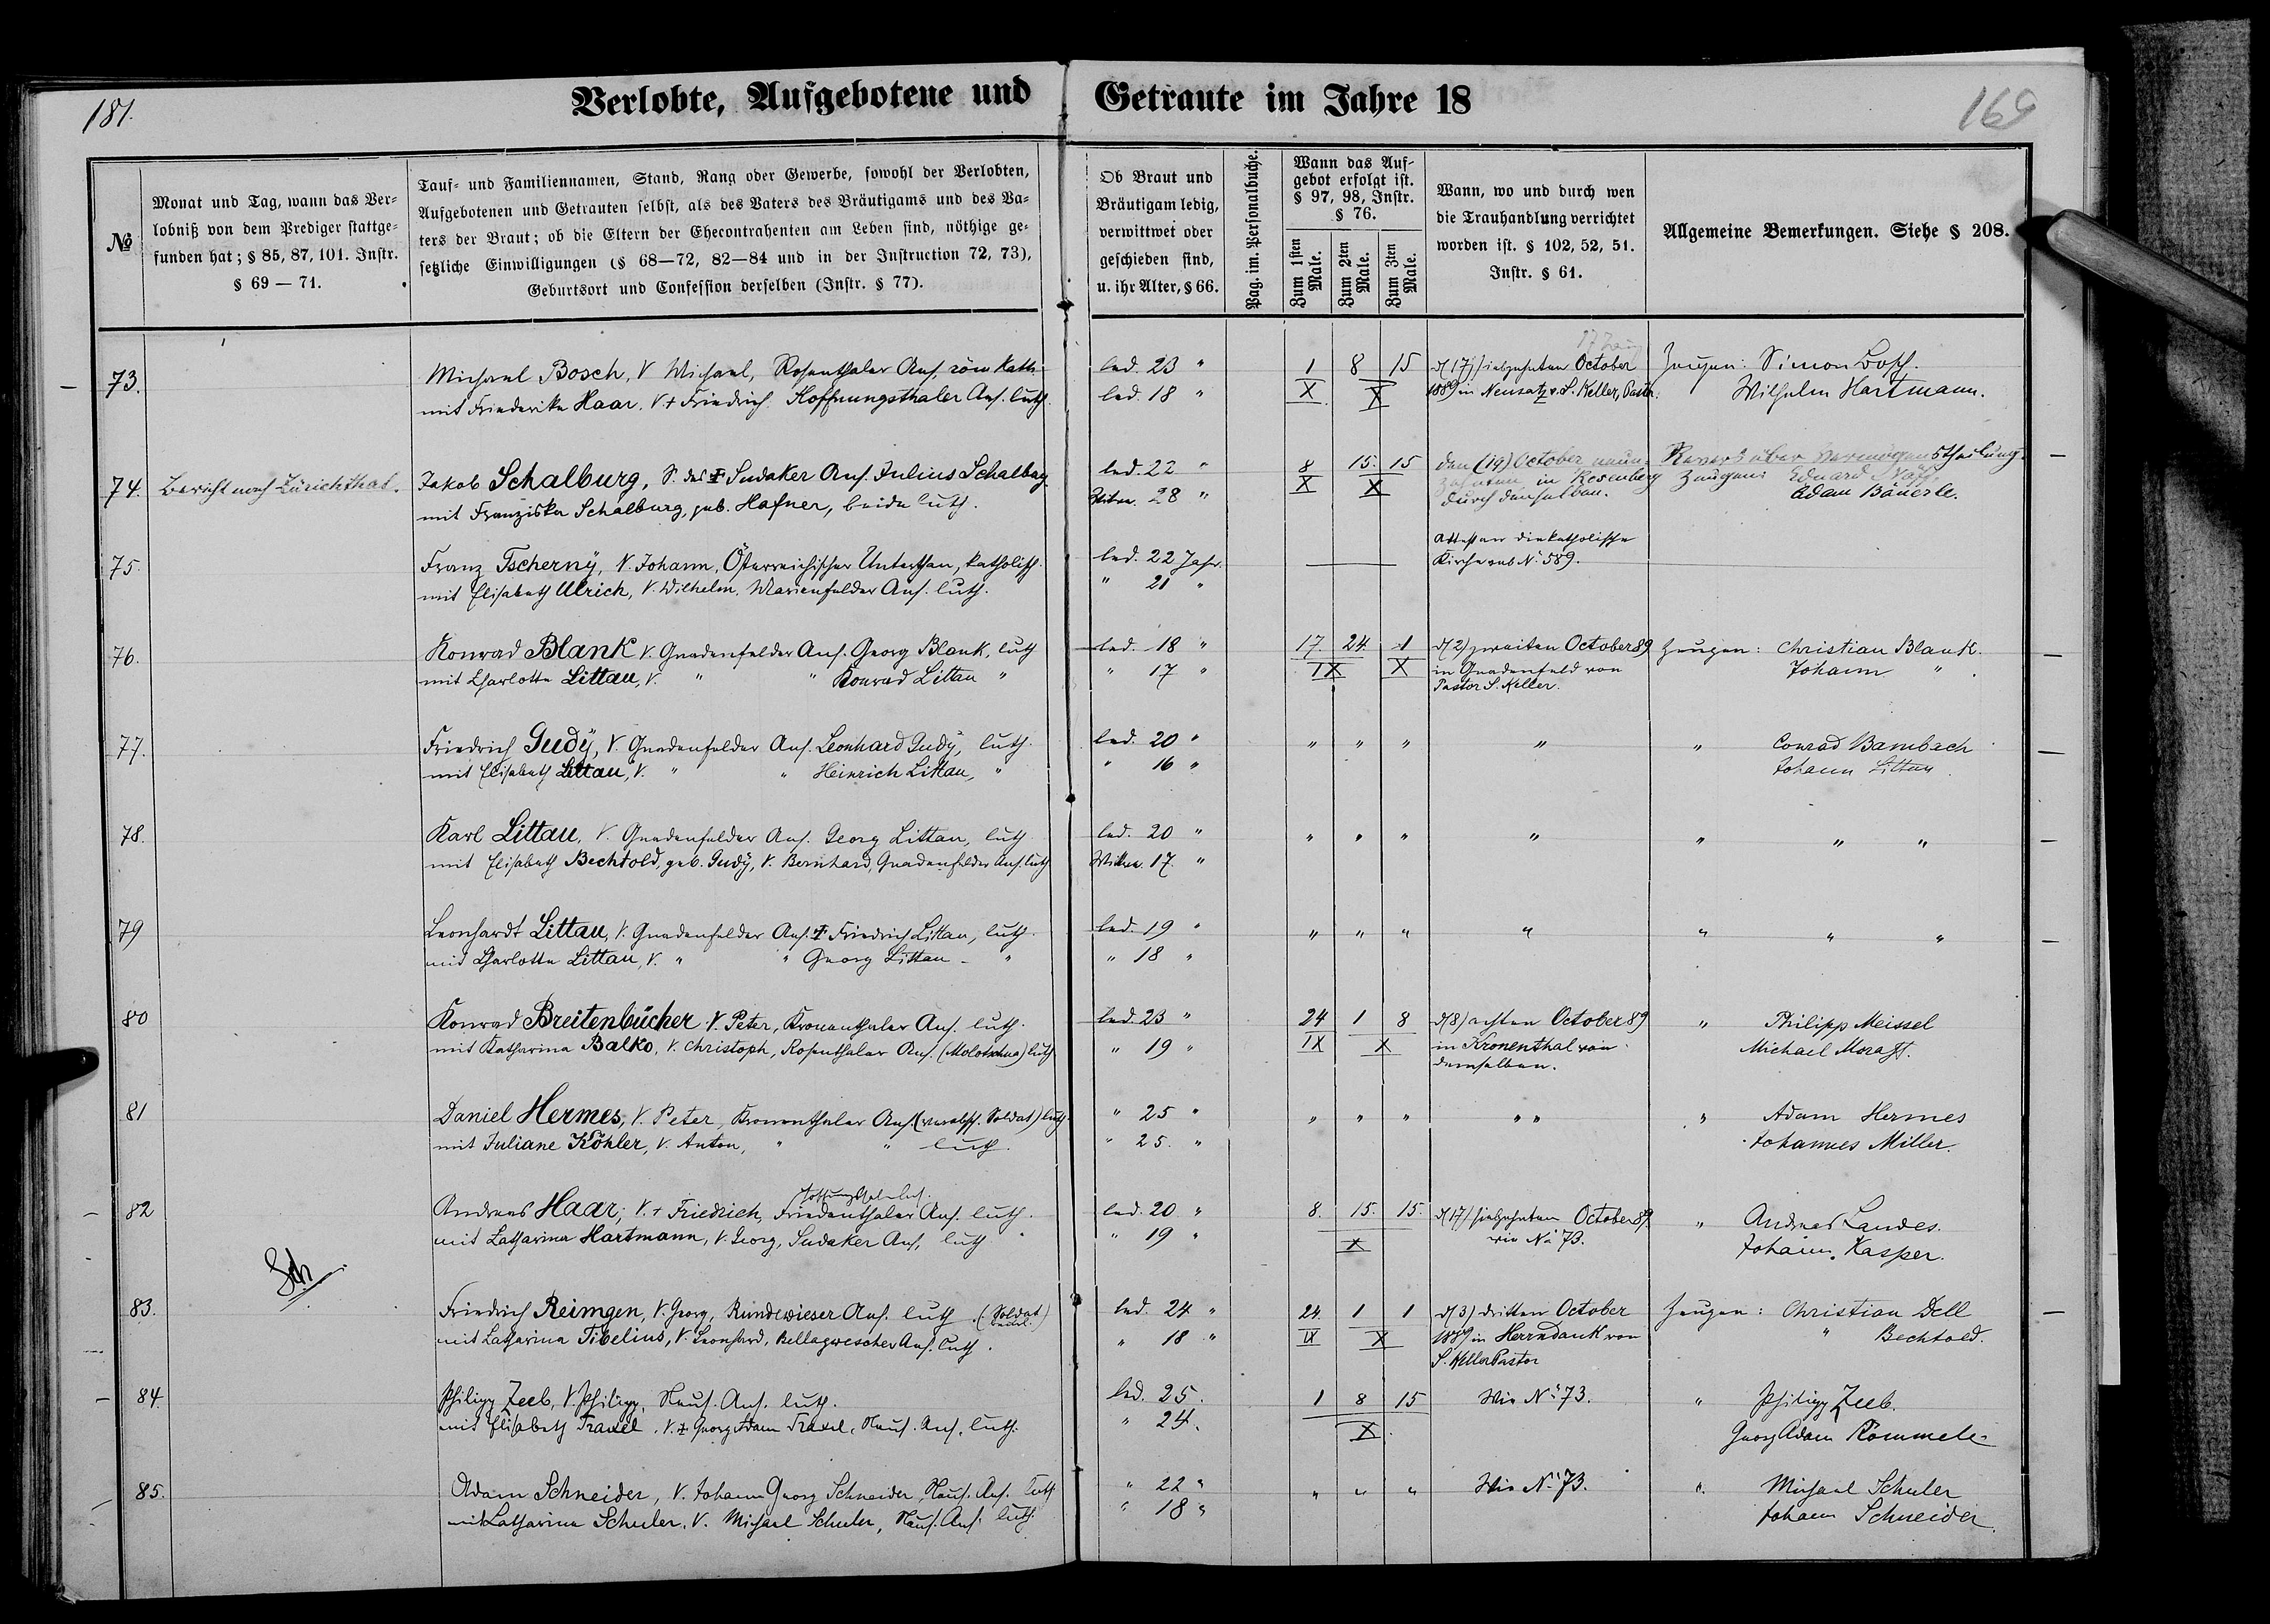 181.
Verlobte, Aufgebotene und Getraute im Jahre 18
169
№
Monat und Tag, wann das Ver-
lobniß von dem Prediger stattge-
funden hat; § 85, 87, 101. Instr.
§ 69 — 71.
Tauf- und Familiennamen, Stand, Rang oder Gewerbe, sowohl der Verlobten,
Aufgebotenen und Getrauten selbst, als des Vaters des Bräutigams und des Va-
ters der Braut; ob die Eltern der Ehecontrahenten am Leben sind, nöthige ge-
setzliche Einwilligungen (§ 68—72, 82—84 und in der Instruction 72, 73),
Geburtsort und Confession derselben (Instr. § 77).
Ob Braut und
Bräutigam ledig,
verwittwet oder
geschieden sind,
u. ihr Alter, § 66.
Pag. im. Personalbuche.
Wann das Auf-
gebot erfolgt ist.
§ 97, 98, Instr.
§ 76.
Zum 1sten
Male.
Zum 2ten
Male.
Zum 3ten
Male.
Wann, wo und durch wen
die Trauhandlung verrichtet
worden ist. § 102, 52, 51.
Instr. § 61.
Allgemeine Bemerkungen. Siehe § 208.
73.
Michael Bosch, V. Michael, Rosenthaler Ans. röm. kath.
mit Friederike Haar, V. + Friedrich Hoffnungsthaler Ans. luth.
led. 23 "
led. 18 "
1 8 15
X X
d (17) siebzehnten October
1889 in Neusatz v. S. Keller, Pastor.
Zeugen: Simon Bosch.
Wilhelm Hartmann.
74.
Bericht nach Zürichthal.
Jakob Schalburg, S. des + Sudaker Ans. Julius Schalburg
mit Franziska Schalburg, geb. Hafner, beide luth.
led. 22 "
Witwe. 28 "
8 15. 15
X X
den (19) October neun-
zehnten in Rosenberg
durch denselben.
Revers über Vermögenstheilung.
Zeugen: Eduard
Adam Bäuerle.
75.
Franz Tscherny, V. Johann, Österreichischer Unterthan, katholisch.
mit Elisabeth Ulrich, V. Wilhelm, Marienfelder Ans. luth.
led. 22 Jahr.
" 21 "
Attest an die katholische
Kirche sub № 589.
76.
Konrad Blank V. Gnadenfelder Ans. Georg Blank, luth
mit Charlotte Littau, V. " " Konrad Littau "
led. 18 "
" 17 "
17. 24 1
IX X
d (2) zweiten October 89
in Gnadenfeld von
Pastor S. Keller.
Zeugen: Christian Blank.
Johann "
77.
Friedrich Gudÿ, V. Gnadenfelder Ans. Leonhard Gudÿ, luth.
mit Elisabeth Littau, V. " " Heinrich Littau, "
led. 20 "
" 16 "
" " " "
" Conrad Bambach
Johann Littau.
78.
Karl Littau, V. Gnadenfelder Ans. Georg Littau, luth.
mit Elisabeth Bechtold, geb. Gudÿ, V. Bernhard, Gnadenfelder Ans. luth
led. 20 "
Witwe. 17. "
" " " "
" " "
79
Leonhardt Littau, V. Gnadenfelder Ans. + Friedrich Littau, luth.
mit Charlotte Littau, V. " " Georg Littau - "
led. 19 "
" 18 "
" " " "
" " "
80
Konrad Breitenbücher V. Peter, Kronenthaler Ans. luth.
mit Katharina Balko, V. Christoph, Rosenthaler Ans. (Molotschna) luth.
led. 23 "
" 19 "
24 1 8
IX X
d (8) achten October 89
in Kronenthal von
demselben.
" Philipp Meissel
Michael Morast.
81
Daniel Hermes, V. Peter, Kronenthaler Ans. (verabsch. Soldat) luth.
mit Juliane Köhler, V. Anton, " " luth.
" 25 "
" 25. "
" " " " "
" Adam Hermes
Johannes Miller.
82
Hoffnungsthaler Ans.
Andreas Haar, V. + Friedrich, Friedenthaler Ans. luth.
mit Katharina Hartmann, V. Georg, Sudaker Ans, luth "
led. 20 "
" 19 "
8. 15. 15.
X
d (17) siebzehnten October 89.
wie № 73.
" Andreas Landes.
Johann Kasper.
Sch
83.
Friedrich Reimgen, V. Georg, Rundewieser Ans. luth. (Soldat)
mit Katharina Tibelius, V. Leonhard, Bellagwescher Ans. luth.
led. 24 "
" 18 "
24. 1 1
IX X
d (3) dritten October
1889 in Herrndank von
S. Keller Pastor
Zeugen: Christian Dell
" Bechtold.
84.
Philipp Zeeb, V. Philipp, Neus. Ans. luth.
mit Elisabeth Traxel, V. + Georg Adam Traxel, Neus. Ans. luth.
led. 25.
" 24.
1 8 15
X
Wie № 73.
" Philipp Zeeb.
Georg Adam Rommele
85.
Adam Schneider, V. Johann Georg Schneider, Neus. Ans. luth
mit Katharina Schuler, V. Michael Schuler, Neus. Ans. luth.
" 22 "
" 18 "
" " "
Wie № 73.
" Michael Schuler
Johann Schneider.